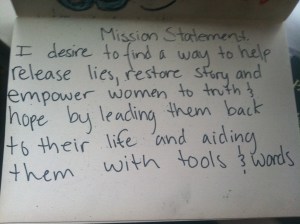 Mission Statement
I desire to find a way to help
release lies, restore story and
empower women to truth &
hope by leading them back
to their life and aiding
them with tools & words